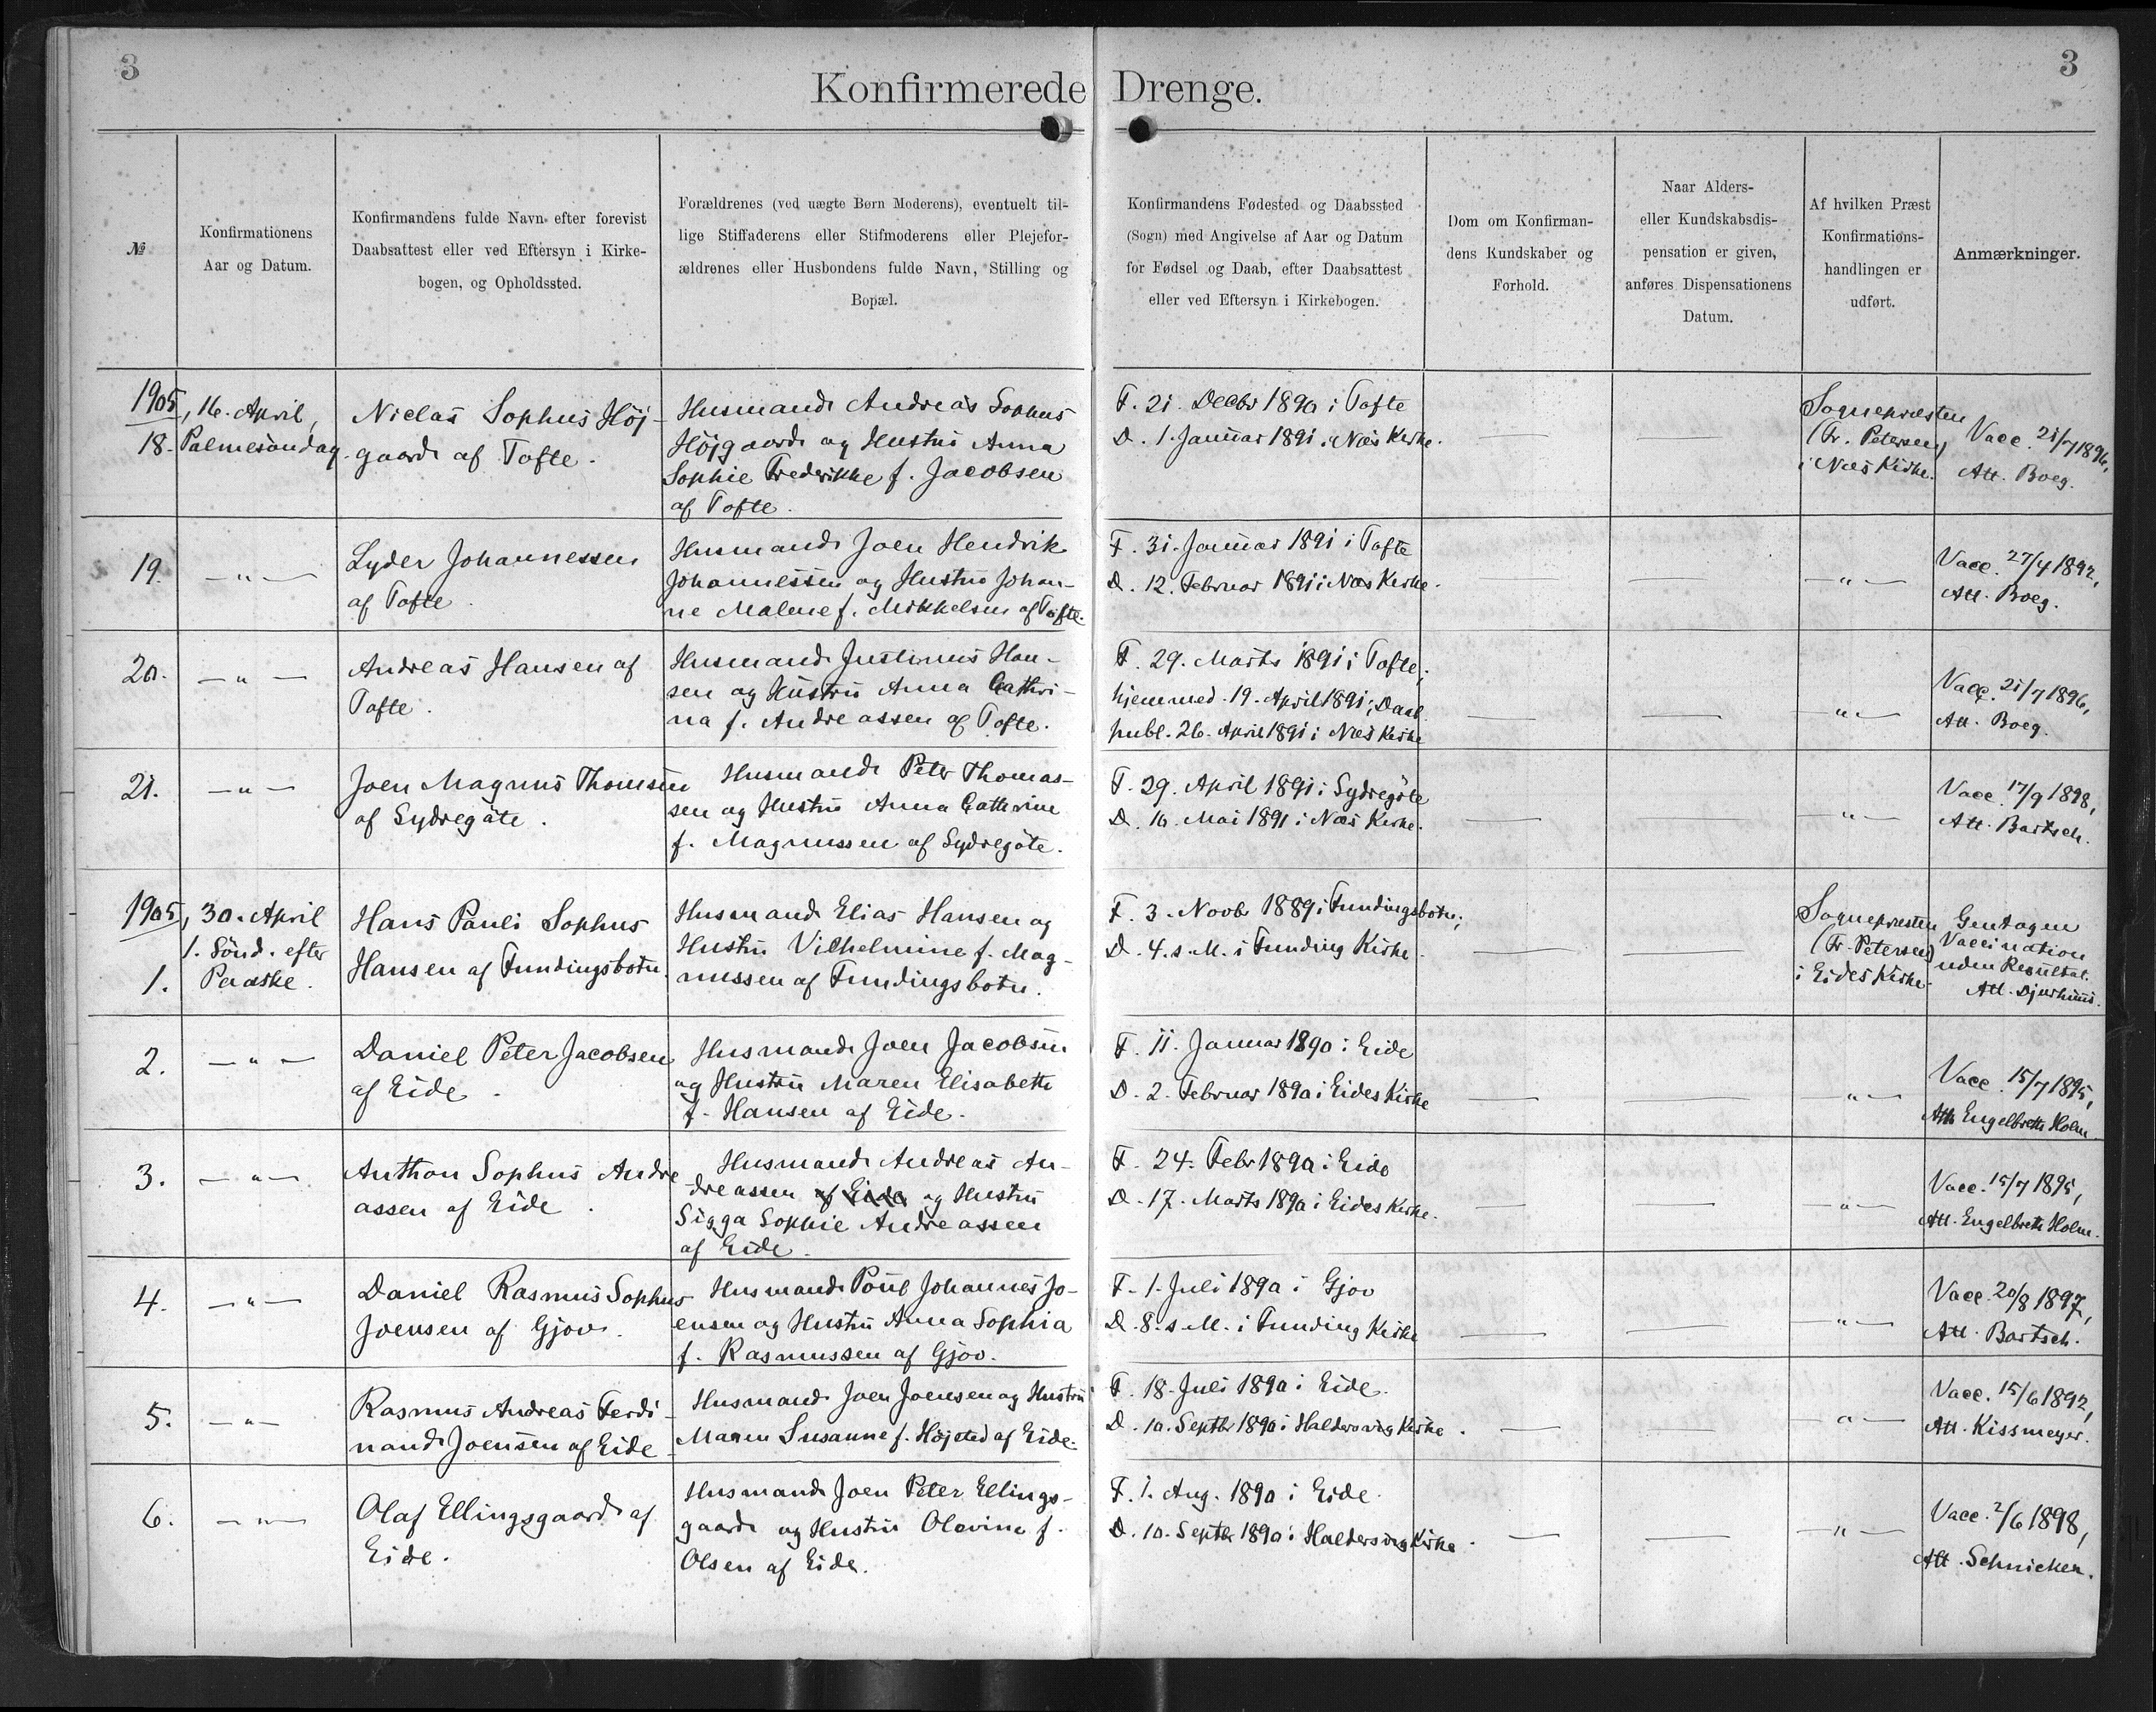 3
3
Konfirmerede Drenge.
№
Konfirmationens
Aar og Datum.
Konfirmandens fulde Navn efter forevist
Daabsattest eller ved Eftersyn i Kirke-
bogen, og Opholdssted.
Forældrenes (ved uægte Børn Moderens), eventuelt til-
lige Stiffaderens eller Stifmoderens eller Plejefor-
ældrenes eller Husbondens fulde Navn, Stilling og
Bopæl.
Konfirmandens Fødested og Daabssted
(Sogn) med Angivelse af Aar og Datum
for Fødsel og Daab, efter Daabsattest
eller ved Eftersyn i Kirkebogen.
Dom om Konfirman-
dens Kundskaber og
Forhold.
Naar Alders-
eller Kundskabsdis-
pensation er given,
anføres Dispensationens
Datum.
Af hvilken Præst
Konfirmations-
handlingen er
udført.
Anmærkninger.
1905, 16. April,
18. Palmesöndag.
Niclas Sophus Höj-
gaard af Tofte.
Husmand Andreas Sophus
Höjgaard og Hustru Anna
Sophie Frederikke f. Jacobsen
af Tofte.
F. 21. Decbr 1890 i Tofte
D. 1. Januar 1891 i Næs Kirke.
Sognepræsten
(Fr. Petersen)
i Næs Kirke.
Vacc. 21/7 1896,
Att. Boeg.
19.
— " —
Lyder Johannessen
af Tofte.
Husmand Joen Hendrik
Johannessen og Hustru Johan-
ne Malene f. Mikkelsen af Tofte.
F. 31. Januar 1891 i Tofte
D. 12. Februar 1891 i Næs Kirke.
— " —
Vacc. 27/4 1892,
Att. Boeg.
20.
— " —
Andreas Hansen af
Tofte.
Husmand Justinus Han-
sen og Hustru Anna Cathri-
na f. Andreassen af Tofte.
F. 29. Marts 1891 i Tofte;
hjemmed. 19. April 1891; Daab
publ. 26. April 1891 i Næs Kirke
— " —
Vacc. 21/7 1896,
Att. Boeg.
21.
— " —
Joen Magnus Thomsen
af Sydregöte.
Husmand Peter Thomas-
sen og Hustru Anna Cathrine
f. Magnussen af Sydregöte.
F. 29. April 1891 i Sydregöte
D. 16. Mai 1891 i Næs Kirke.
— " —
Vacc. 17/9 1898,
Att. Bartsch.
1905, 30. April
1. Sönd. efter
1. Paaske.
Hans Pauli Sophus
Hansen af Fundingsbotn.
Husmand Elias Hansen og
Hustru Vilhelmine f. Mag-
nussen af Fundingsbotn.
F. 3. Novb 1889 i Fundingsbotn;
D. 4. s. M. i Funding Kirke.
Sognepræsten
(Fr. Petersen)
i Eides Kirke
Gentagen
Vaccination
uden Resultat.
Att. Djurhuus.
2.
— " —
Daniel Peter Jacobsen
af Eide.
Husmand Joen Jacobsen
og Hustru Maren Elisabeth
f. Hansen af Eide.
F. 11. Januar 1890 i Eide
D. 2. Februar 1890 i Eides Kirke
— " —
Vacc. 15/7 1895,
Att. Engelbreth Holm.
3.
— " —
Anthon Sophus Andre
assen af Eide.
Husmand Andreas An-
dreassen af Eide og Hustru
Sigga Sophie Andreassen
af Eide.
F. 24. Febr 1890 i Eide
D. 17. Marts 1890 i Eides Kirke.
— " —
Vacc. 15/7 1895,
Att. Engelbreth Holm.
4.
— " —
Daniel Rasmus Sophus
Joensen af Gjov.
Husmand Poul Johannes Jo-
ensen og Hustru Anna Sophia
f. Rasmussen af Gjov.
F. 1. Juli 1890 i Gjov
D. 8. s. M. i Funding Kirke
— " —
Vacc. 20/8 1897,
Att. Bartsch.
5.
— " —
Rasmus Andreas Ferdi-
nand Joensen af Eide.
Husmand Joen Joensen og Hustru
Maren Susanne f. Højsted af Eide.
F. 18. Juli 1890 i Eide.
D. 10. Septb 1890 i Haldersvig Kirke.
— " —
Vacc. 15/6 1892,
Att. Kissmeyer.
6.
— " —
Olaf Ellingsgaard af
Eide.
Husmand Joen Peter Ellings-
gaard og Hustru Olevine f.
Olsen af Eide.
F. 1. Aug. 1890 i Eide.
D. 10. Septb 1890 i Haldersvig Kirke.
— " —
Vacc. 2/6 1898,
Att. Schnicker.